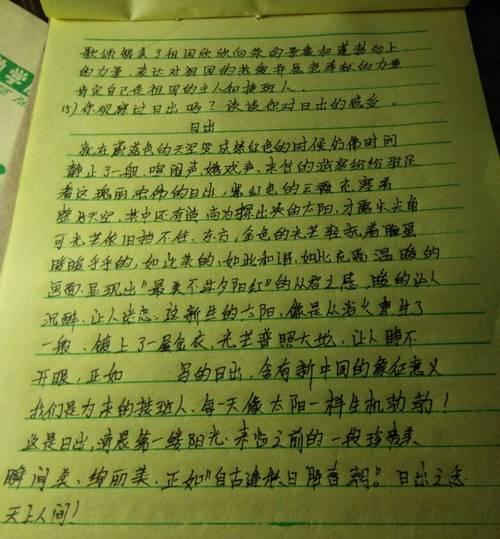 歌颂了祖国欣欣向荣的景象和蓬勃向上
的力量,表达对祖国的热爱并愿意奉献的力量
肯定自己是祖国的主人和接班人.
(5)你观察过日出吗?谈谈你对日出的感受.
日出
就在蔚蓝色的天空变成装红色的时候仿佛时间
静止了一般,喧闹声嬉戏声,来往的游客纷纷驻足
看这瑰丽宏伟的日出,紫幻色的云霞充塞着
整片天空,其中还有尚为探出头的太阳,才露出尖角
可光芒依旧挡不住.东方,金色的光芒轻抚着脸蛋
暖暖乎乎的,如此柔的,如此和谐,如此充满温暖的
画面.显现出"最美不过夕阳红"的从容之感.暖的让人
沉醉.让人迷恋.这新生的太阳,像是从浴火重生了
一般.镀上了一层金衣.光芒普照大地,让人睁不
开眼,正如 写的日出,含有新中国的象征意义
我们是为来的接班人.每一天像太阳一样生机勃勃!
这是日出,清晨第一缕阳光.来临之前的一段
瞬间美、绚丽美.正如"自古逢秋日胜春朝".日出之态
天上人间!